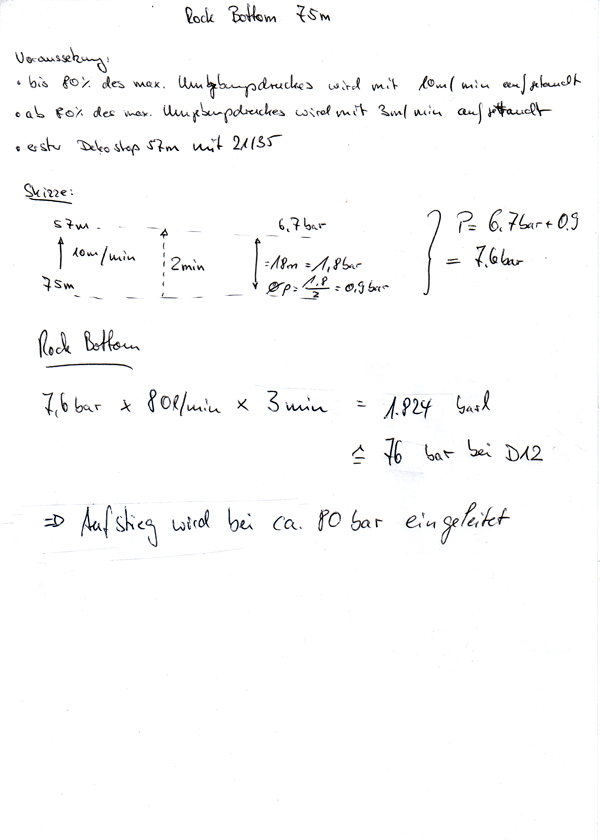 Rock Bottom 75m
Voraussetzung:
• bis 80% des max. Umgebungsdruckes wird mit 10m/min aufgetaucht
• ab 80% des max. Umgebungsdruckes wird mit 3m/min aufgetaucht
• erster Dekostop 57m mit 21/35
Skizze:
57m 6,7bar
10m/min 2min =18m = 1,8bar
75m Øp = 1,8/2 = 0,9bar
P = 6,7bar + 0,9
= 7,6bar
Rock Bottom
7,6bar x 80l/min x 3min = 1.824 barl
≙ 76 bar bei D12
⇒ Aufstieg wird bei ca. 80bar eingeleitet